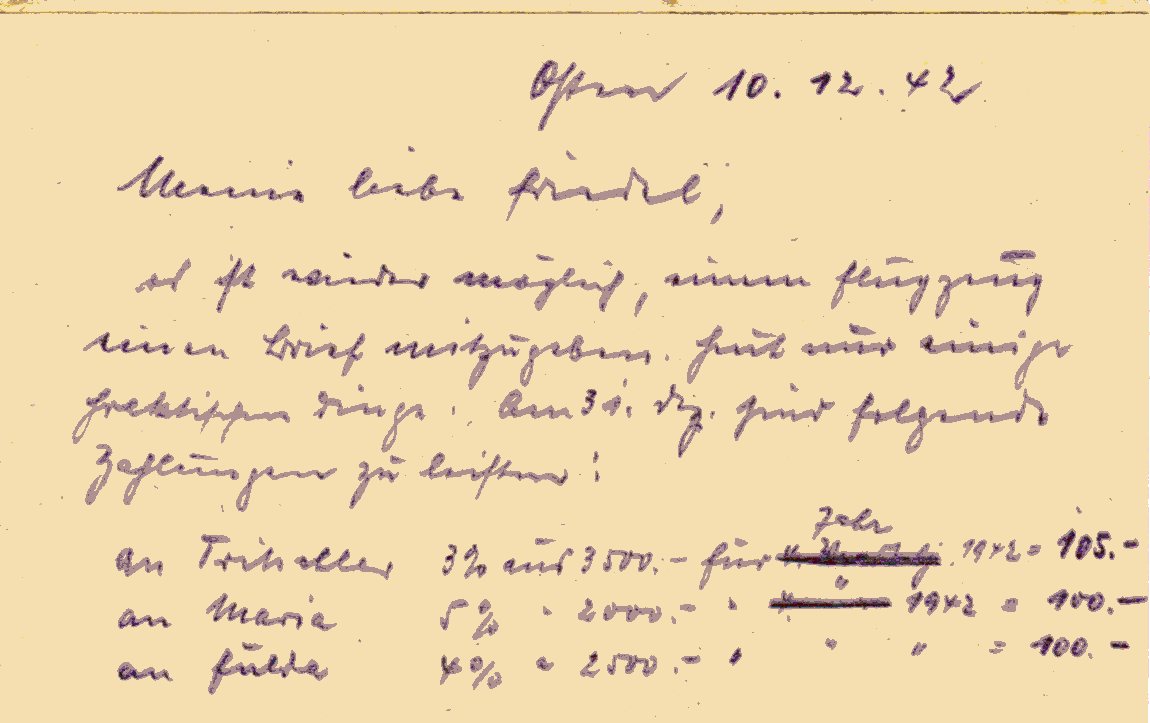 Osten 10.12.42
Meine liebe Friedel,
es ist wieder möglich, einem Flugzeug
einen Brief mitzugeben. Heut nur einige
praktischen Dinge. Am 31. Dez. sind folgende
Zahlungen zu leisten:
Jahr
an 3% aus 3500.- für 1942 = 105.-
an Maria 5% " 2000.- " " 1942 = 100.-
an Fulda 4% " 2500.- " " " = 100.-